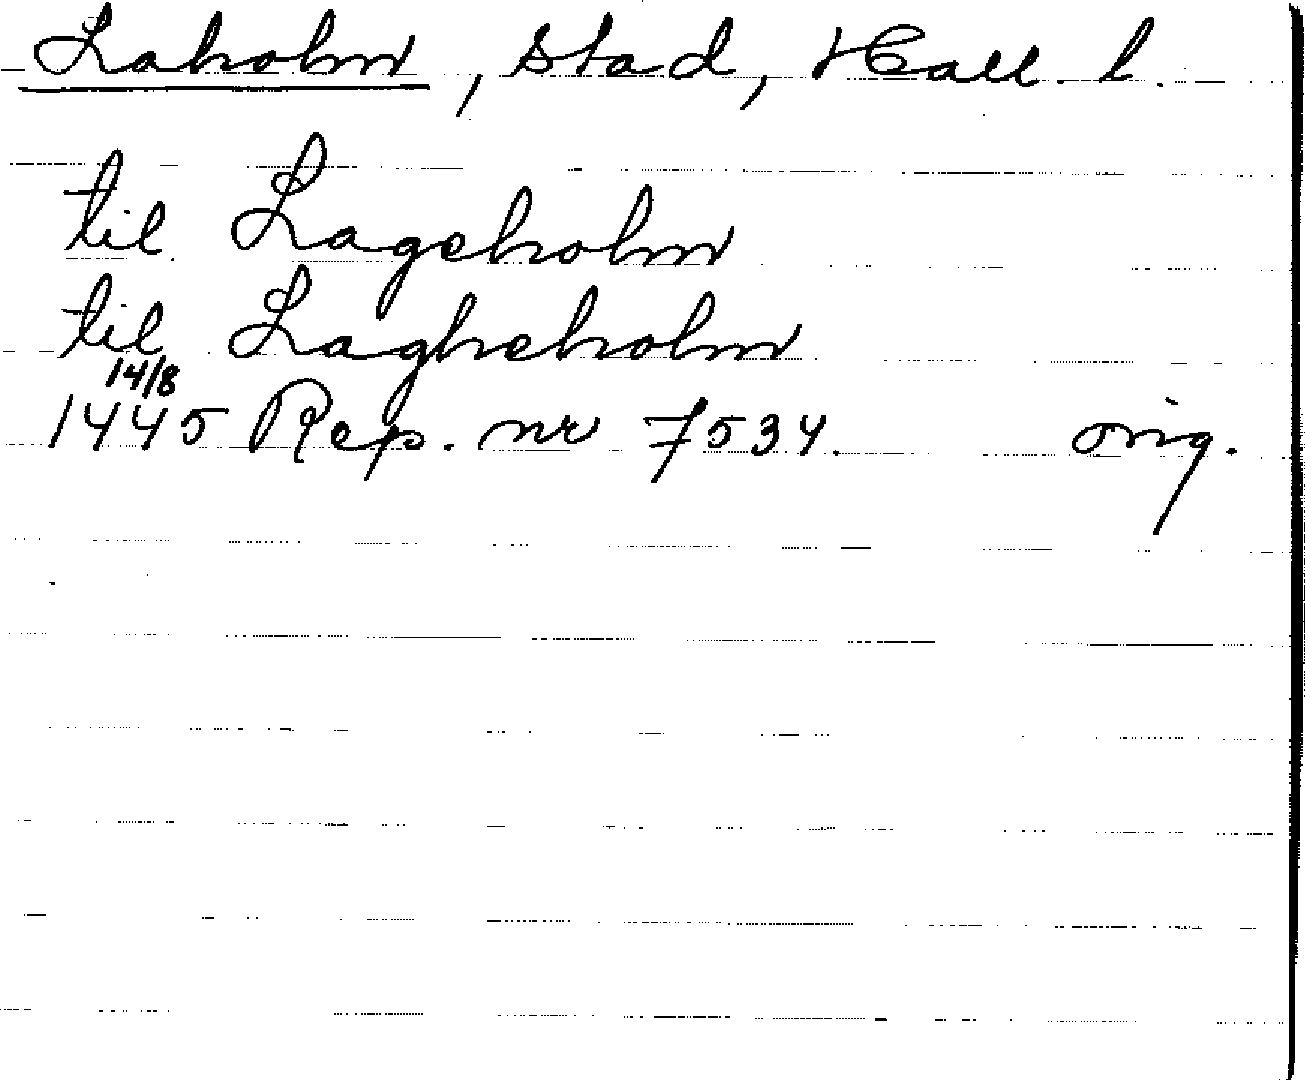 Laholm, Stad, Hall. l.
til Lageholm
til Lagheholm
14/8
1445 Rep. nr 7534. orig.